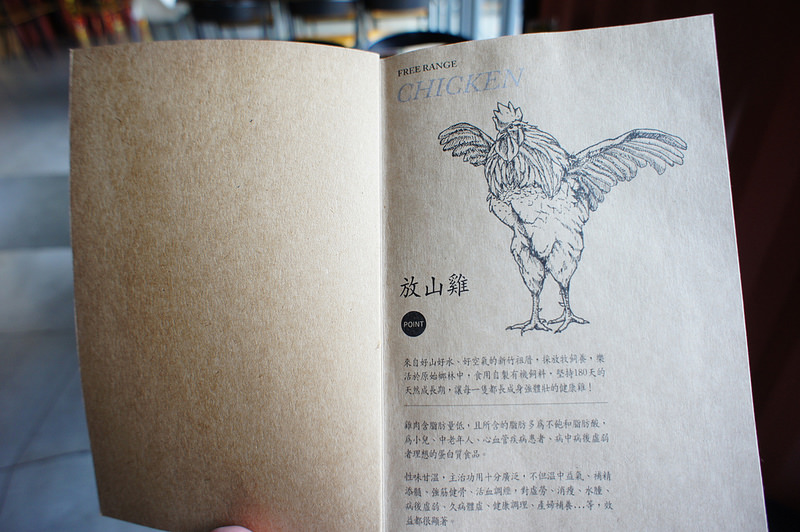 FREE RANGE
CHICKEN
放山雞
POINT
來自好山好水、好空氣的新竹祖厝,採放牧飼養,樂
活於原始鄉林中,食用自製有機飼料,堅持180天的
天然成長期,讓每一隻都長成身強體壯的健康雞!
雞肉含脂肪量低,且所含的脂肪多為不飽和脂肪酸,
為小兒、中老年人、心血管疾病患者、病中病後虛弱
者理想的蛋白質食品。
性味甘溫,主治功用十分廣泛,不但溫中益氣、補精
添髓、強筋健骨、活血調經,對虛勞、消瘦、水腫、
病後虛弱、久病體虛、健康調理、產婦補養...等,效
益都很顯著。